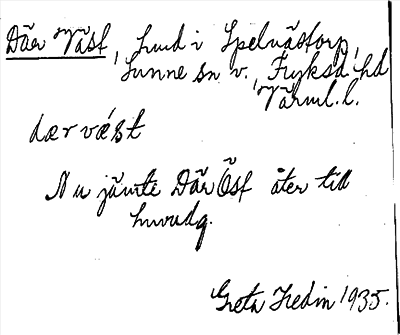 Där Väst, hmd i Spelnästorp,
Sunne sn v., Fryksd. hd
Värml. l.
dær vést
Nu jämte Där Öst åter till
huvudg.
Greta Hedin 1935.